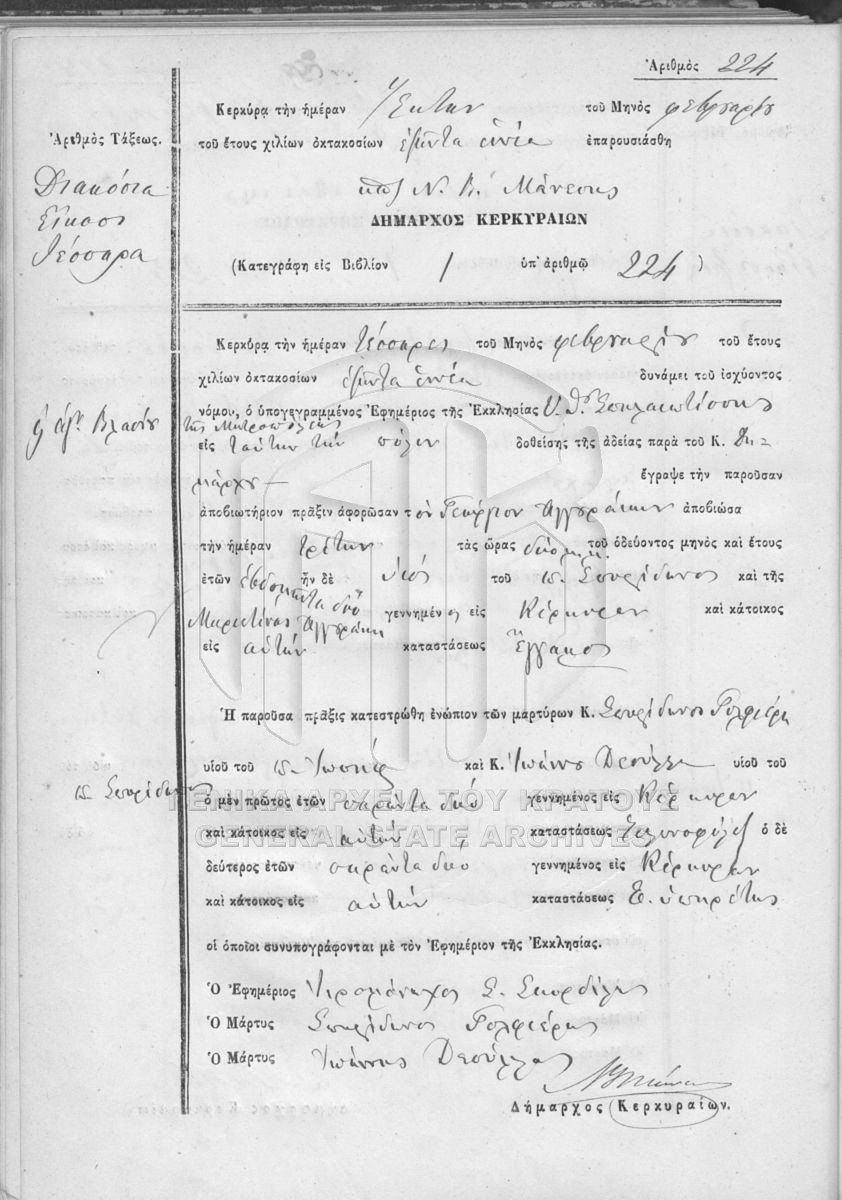 Ἀριθμὸς 224
Κερκύρα τὴν ἡμέραν Ἕκτην τοῦ Μηνὸς φεβρουαρίου
Ἀριθμὸς Τάξεως.
τοῦ ἔτους χιλίων ὀκτακοσίων ἑξῆντα ἐννέα ἐπαρουσιάσθη
Διακόσια
Εἴκοσι
Τέσσαρα
Ν. Β. Μάνεσης
ΔΗΜΑΡΧΟΣ ΚΕΡΚΥΡΑΙΩΝ
(Κατεγράφη εἰς Βιβλίον 1 ὑπ' ἀριθμῷ 224)
Κερκύρα τὴν ἡμέραν τέσσαρες τοῦ Μηνὸς φεβρουαρίου τοῦ ἔτους
χιλίων ὀκτακοσίων ἑξῆντα ἐννέα δυνάμει τοῦ ἰσχύοντος
νόμου, ὁ ὑπογεγραμμένος Ἐφημέριος τῆς Ἐκκλησίας Υ. Θ. Σπηλαιωτίσσης
Βλασίου
τῆς Μητροπόλεως
εἰς ταύτην τὴν πόλιν δοθείσης τῆς ἀδείας παρὰ τοῦ Κ. Δη-
μάρχου — ἔγραψε τὴν παροῦσαν
ἀποβιωτήριον πρᾶξιν ἀφορῶσαν τὸν Γεώργιον ἀποβιώσα
τὴν ἡμέραν τρίτην τὰς ὥρας τοῦ ὁδεύοντος μηνὸς καὶ ἔτους
ἐτῶν ἑβδομῆντα δύο ἦν δὲ υἱός τοῦ π. Σπυρίδωνος καὶ τῆς
γεννημένος εἰς Κέρκυραν καὶ κάτοικος
εἰς αὐτήν καταστάσεως Ἔγγαμος
Ἡ παροῦσα πρᾶξις κατεστρώθη ἐνώπιον τῶν μαρτύρων Κ. Σπυρίδωνος Γολφιέρη
υἱοῦ τοῦ π. Ἰωσήφ καὶ Κ. Ἰωάννου υἱοῦ τοῦ
π. Σπυρίδωνος
ὁ μὲν πρῶτος ἐτῶν σαράντα δύο γεννημένος εἰς Κέρκυραν
καὶ κάτοικος εἰς αὐτήν καταστάσεως ὁ δὲ
δεύτερος ἐτῶν σαράντα δύο γεννημένος εἰς Κέρκυραν
καὶ κάτοικος εἰς αὐτήν καταστάσεως ὑπηρέτης
οἱ ὁποῖοι συνυπογράφονται μὲ τὸν Ἐφημέριον τῆς Ἐκκλησίας.
Ὁ Ἐφημέριος Ἱερομόναχος Σ. Σκορδίλης
Ὁ Μάρτυς Σπυρίδωνος Γολφιέρης
Ὁ Μάρτυς Ἰωάννης
Δήμαρχος Κερκυραίων.
ΓΕΝΙΚΑ ΑΡΧΕΙΑ ΤΟΥ ΚΡΑΤΟΥΣ
GENERAL STATE ARCHIVES